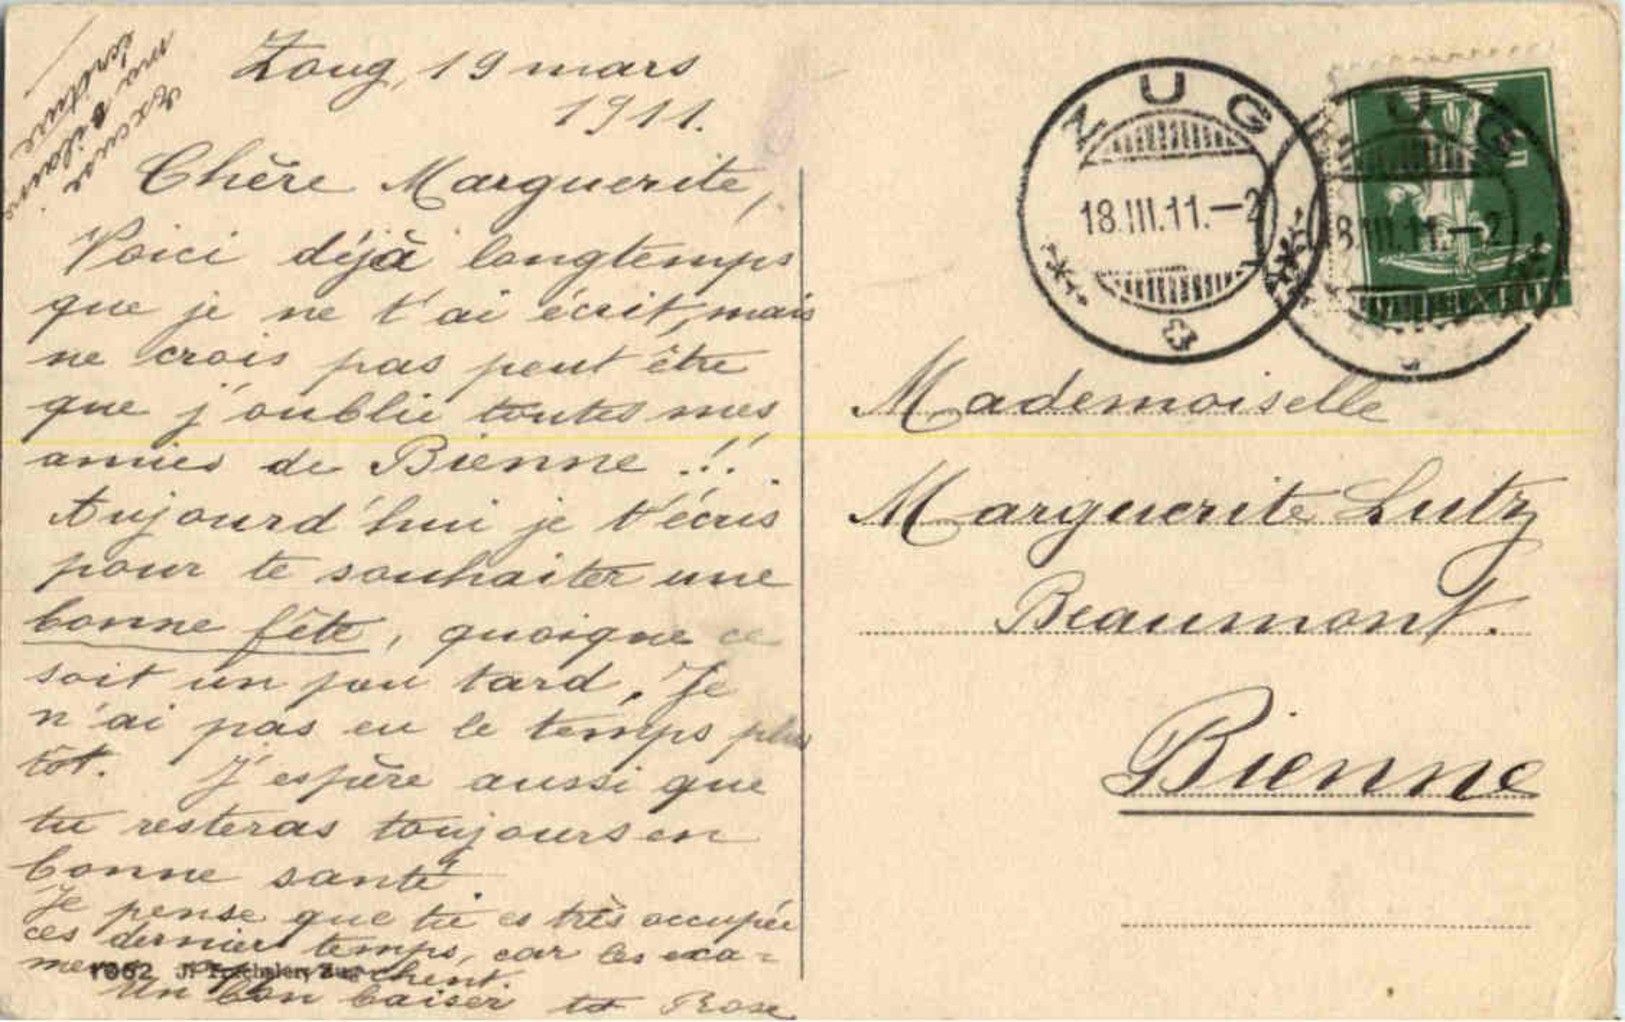 Zoug, 19 mars
1911.
Excuse
ma vilaine
écriture
Chère Marguerite,
Voici déjà longtemps
que je ne t'ai écrit, mais
ne crois pas peut être
que j'oublie toutes mes
amies de Bienne !!
Aujourd'hui je t'écris
pour te souhaiter une
bonne fête, quoique ce
soit un peu tard. Je
n'ai pas eu le temps plus
tôt. J'espère aussi que
tu resteras toujours en
bonne santé.
Je pense que tu es très occupée
ces dernier temps, car les exa=
mens approchent.
Un bon baiser ta Rose
1062 J.
ZUG
18.III.11.-2
ZUG
18.III.11.-2
Mademoiselle
Marguerite Lutz
Beaumont.
Bienne